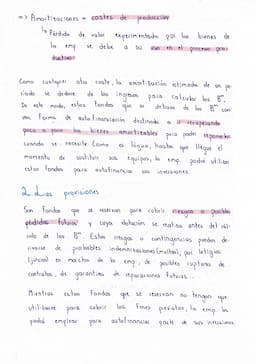 => Amortizaciones = costes de producción
↳ Pérdida de valor experimentada por los bienes de
la emp. se debe a su uso en el proceso pro-
ductivo.
Como cualquier otro coste, la amortización estimada de un pe-
ríodo se deduce de los ingresos para calcular los Bº.
De este modo, estos fondos que se detraen de los Bº son
una forma de autofinanciación destinada a ir recuperando
poco a poco los bienes amortizables para poder reponerlos
cuando se necesite. Como es lógico, hasta que llegue el
momento de sustituir sus equipos, la emp. podrá utilizar
estos fondos para autofinanciar sus inversiones.
2. Las provisiones
Son fondos que se reservan para cubrir riesgos o posibles
pérdidas futuras y cuya dotación se realiza antes del cál-
culo de los Bº. Estos riesgos o contingencias pueden de-
rivarse de probables indemnizaciones (multas), por litigios
(juicios) en marcha de la emp., de posibles rupturas de
contratos, de garantías de reparaciones futuras...
Mientras estos fondos que se reservan no tengan que
utilizarse para cubrir los fines previstos, la emp. los
podrá emplear para autofinanciar parte de sus inversiones